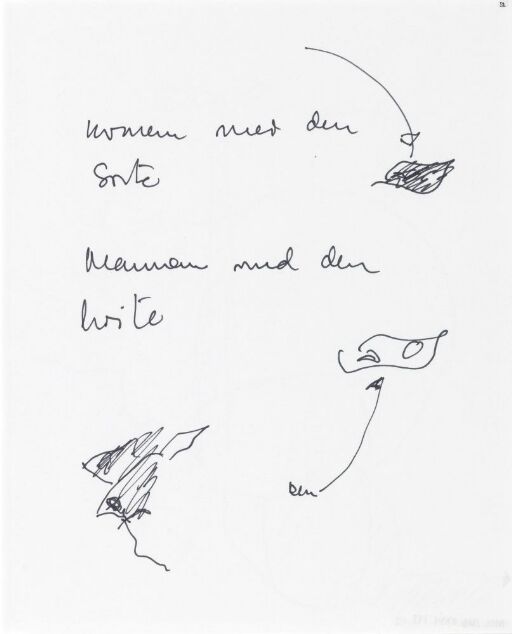 konen med den
Sorte
Mannen med den
hvite
den